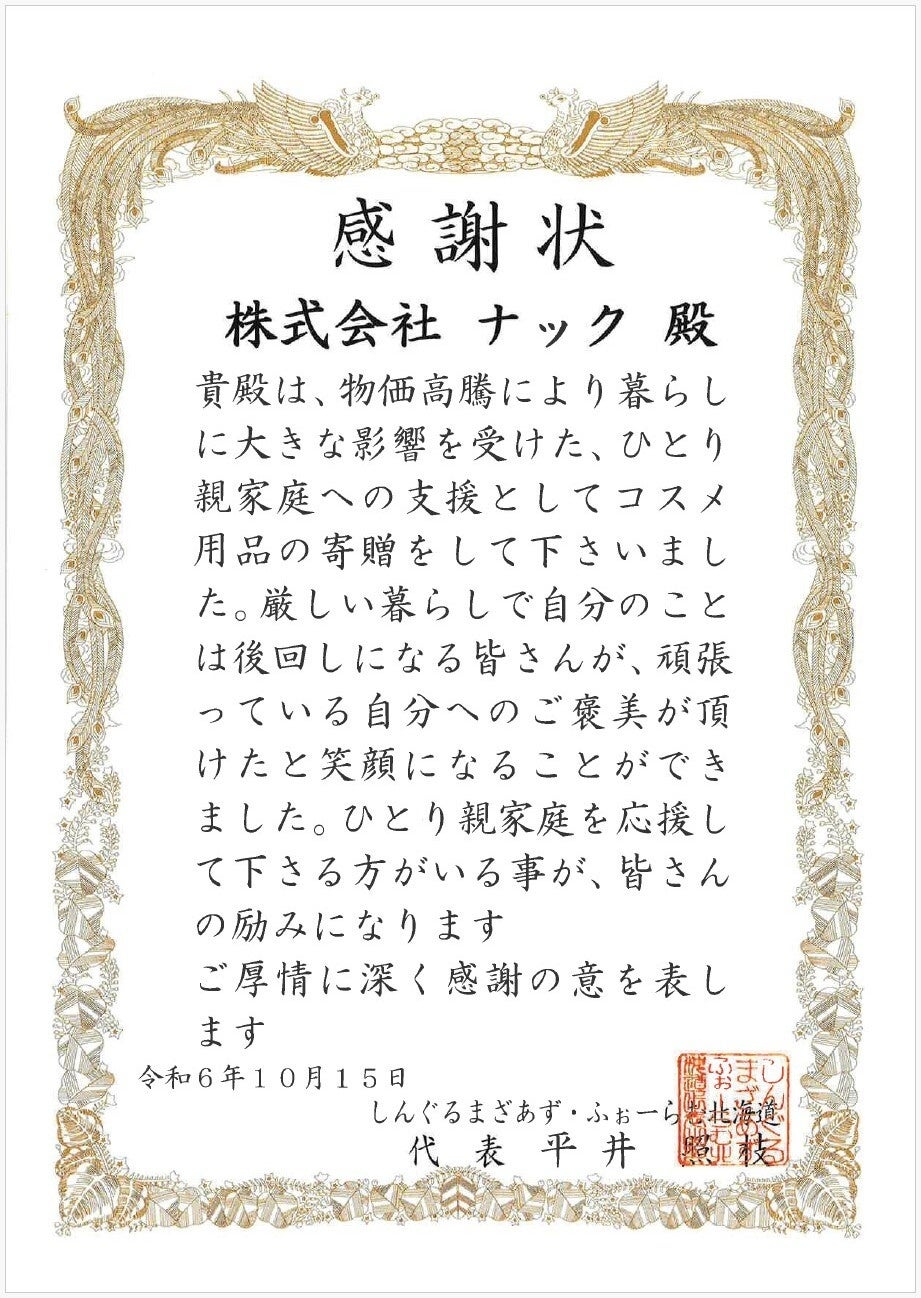 感謝状
株式会社 ナック 殿
貴殿は、物価高騰により暮らし
に大きな影響を受けた、ひとり
親家庭への支援としてコスメ
用品の寄贈をして下さいまし
た。厳しい暮らしで自分のこと
は後回しになる皆さんが、頑張
っている自分へのご褒美が頂
けたと笑顔になることができ
ました。ひとり親家庭を応援し
て下さる方がいる事が、皆さん
の励みになります
ご厚情に深く感謝の意を表し
ます
令和6年10月15日
しんぐるまざあず・ふぉーらむ北海道
代表 平井 照枝